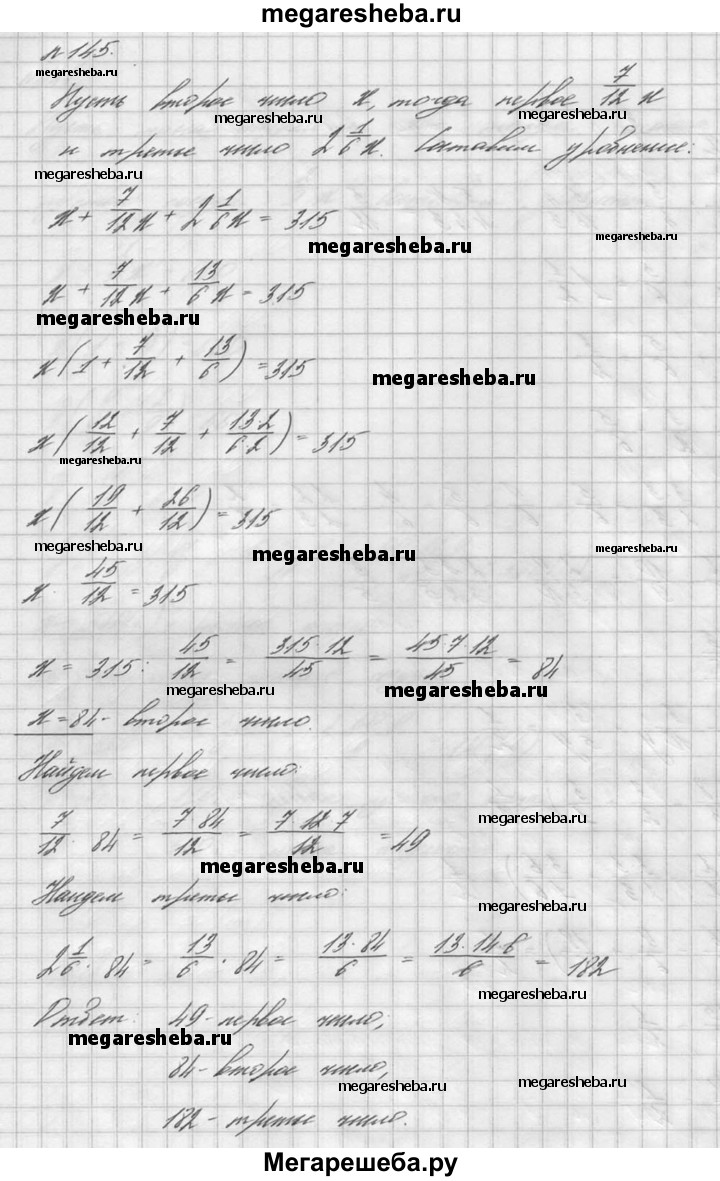 megaresheba.ru
n 145.
megaresheba.ru
Пусть второе число x, тогда первое 7/12 x
megaresheba.ru
megaresheba.ru
и третье число 2 1/6 x. Составим уравнение:
megaresheba.ru
x + 7/12 x + 2 1/6 x = 315
megaresheba.ru
megaresheba.ru
x + 7/12 x + 13/6 x = 315
megaresheba.ru
x (1 + 7/12 + 13/6) = 315
megaresheba.ru
x (12/12 + 7/12 + 13·2/6·2) = 315
megaresheba.ru
x (19/12 + 26/12) = 315
megaresheba.ru
megaresheba.ru
megaresheba.ru
x · 45/12 = 315
x = 315 : 45/12 = 315·12/45 = 45·7·12/45 = 84
megaresheba.ru
megaresheba.ru
x = 84 - второе число.
Найдем первое число:
7/12 · 84 = 7·84/12 = 7·12·7/12 = 49
megaresheba.ru
megaresheba.ru
Найдем третье число:
megaresheba.ru
2 1/6 · 84 = 13/6 · 84 = 13·84/6 = 13·14·6/6 = 182
megaresheba.ru
Ответ: 49 - первое число;
megaresheba.ru
84 - второе число,
megaresheba.ru
megaresheba.ru
182 - третье число.
Мегарешеба.ру